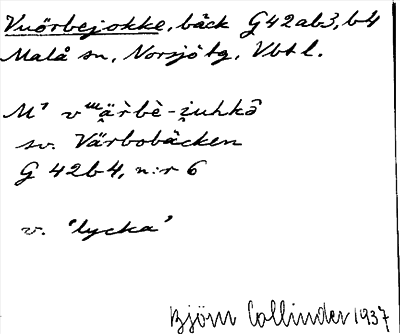 Vuörbejokke, bäck G42ab3, b4
Malå sn, Norsjö tg, Vbt l.
M¹ vᵚä̭r̀bè-i̭uhkô
sv. Värbobäcken
G 42b4, n:r 6
v. 'lycka'
Björn Collinder 1937